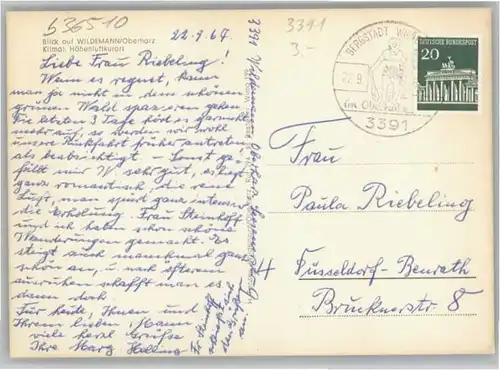 536510
Blick auf WILDEMANN/Oberharz
Klimat. Höhenluftkurort
22.9.67
Liebe Frau Riebeling!
Wenn es regnet, kann
man ja nicht in dem schönen
grünen Wald spazieren gehen
Die letzten 3 Tage hört es garnicht
mehr auf, so werden wir wohl
unsere Rückfahrt früher antreten
als beabsichtigt – Sonst ge-
fällt mir W. sehr gut, es liegt
ganz romantisch, die reine
Luft, man spürt ganz intensiv
die Erholung. Frau Steinhoff
und ich haben schon schöne
Wanderungen gemacht. Es
steigt auch manchmal ganz
schön an, u. nach öfterem
ausruhen schafft man es
dann doch.
Für heute, Ihnen und
Ihrem lieben Mann
viele herzl. Grüsse
Ihre Marg. Helling
3391 Wildemann Oberharz
3391
3.-
BERGSTADT
22.9.
im Oberharz
3391
DEUTSCHE BUNDESPOST
20
Frau
Paula Riebeling
4 Düsseldorf-Benrath
Brucknerstr. 8